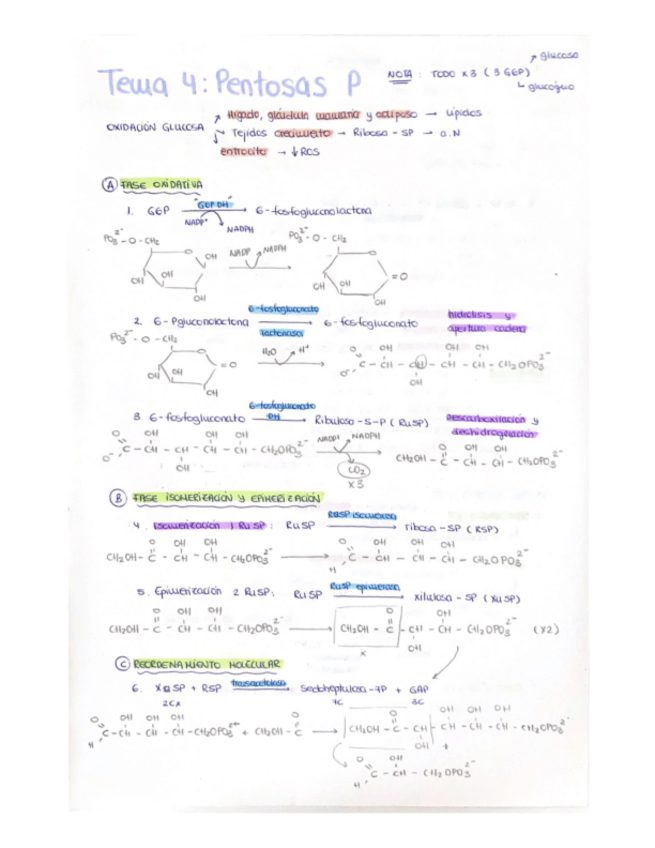 Tema 4: Pentosas P
NOTA: TODO x3 (3 G6P)
glucosa
glucógeno
OXIDACIÓN GLUCOSA
Hígado, glándula mamaria y adiposo → Lípidos
Tejidos crecimiento → Ribosa-5P → a.N
eritrocito → ↓ROS
A FASE OXIDATIVA
1. G6P "G6P DH" 6-fosfogluconolactona
NADP+ NADPH
PO3 2- - O - CH2 OH OH OH OH
NADP NADPH
PO3 2- - O - CH2 OH OH OH =O
2. 6-Pgluconolactona 6-fosfogluconato lactonasa 6-fosfogluconato
hidrólisis y apertura cadena
PO3 2- - O - CH2 OH OH OH =O
H2O H+
O OH OH OH
O- C - CH - CH - CH - CH - CH2OPO3 2-
OH
3. 6-fosfogluconato 6-fosfogluconato DH Ribulosa-5-P (RuSP)
Descarboxilación y deshidrogenación
O OH OH OH
O- C - CH - CH - CH - CH - CH2OPO3 2-
OH
NADP+ NADPH
CO2
x3
O OH OH
CH2OH - C - CH - CH - CH2OPO3 2-
B FASE ISOMERIZACIÓN Y EPIMERIZACIÓN
4. Isomerización 1 RuSP: RuSP RBSP isomerasa ribosa-5P (RSP)
O OH OH
CH2OH - C - CH - CH - CH2OPO3 2-
O OH OH OH
H C - CH - CH - CH - CH2OPO3 2-
5. Epimerización 2 RuSP: RuSP RuSP epimerasa xilulosa-5P (XuSP)
O OH OH
CH2OH - C - CH - CH - CH2OPO3 2-
O OH
CH2OH - C - CH - CH - CH2OPO3 2- (x2)
OH
x
C REORDENAMIENTO MOLECULAR
6. XuSP + RSP transcetolasa Sedoheptulosa-7P + GAP
2Cx 7C 3C
O OH OH OH
H C - CH - CH - CH - CH2OPO3 2- + CH2OH - C
O OH OH OH
CH2OH - C - CH - CH - CH - CH - CH2OPO3 2-
OH +
O OH
H C - CH - CH2OPO3 2-